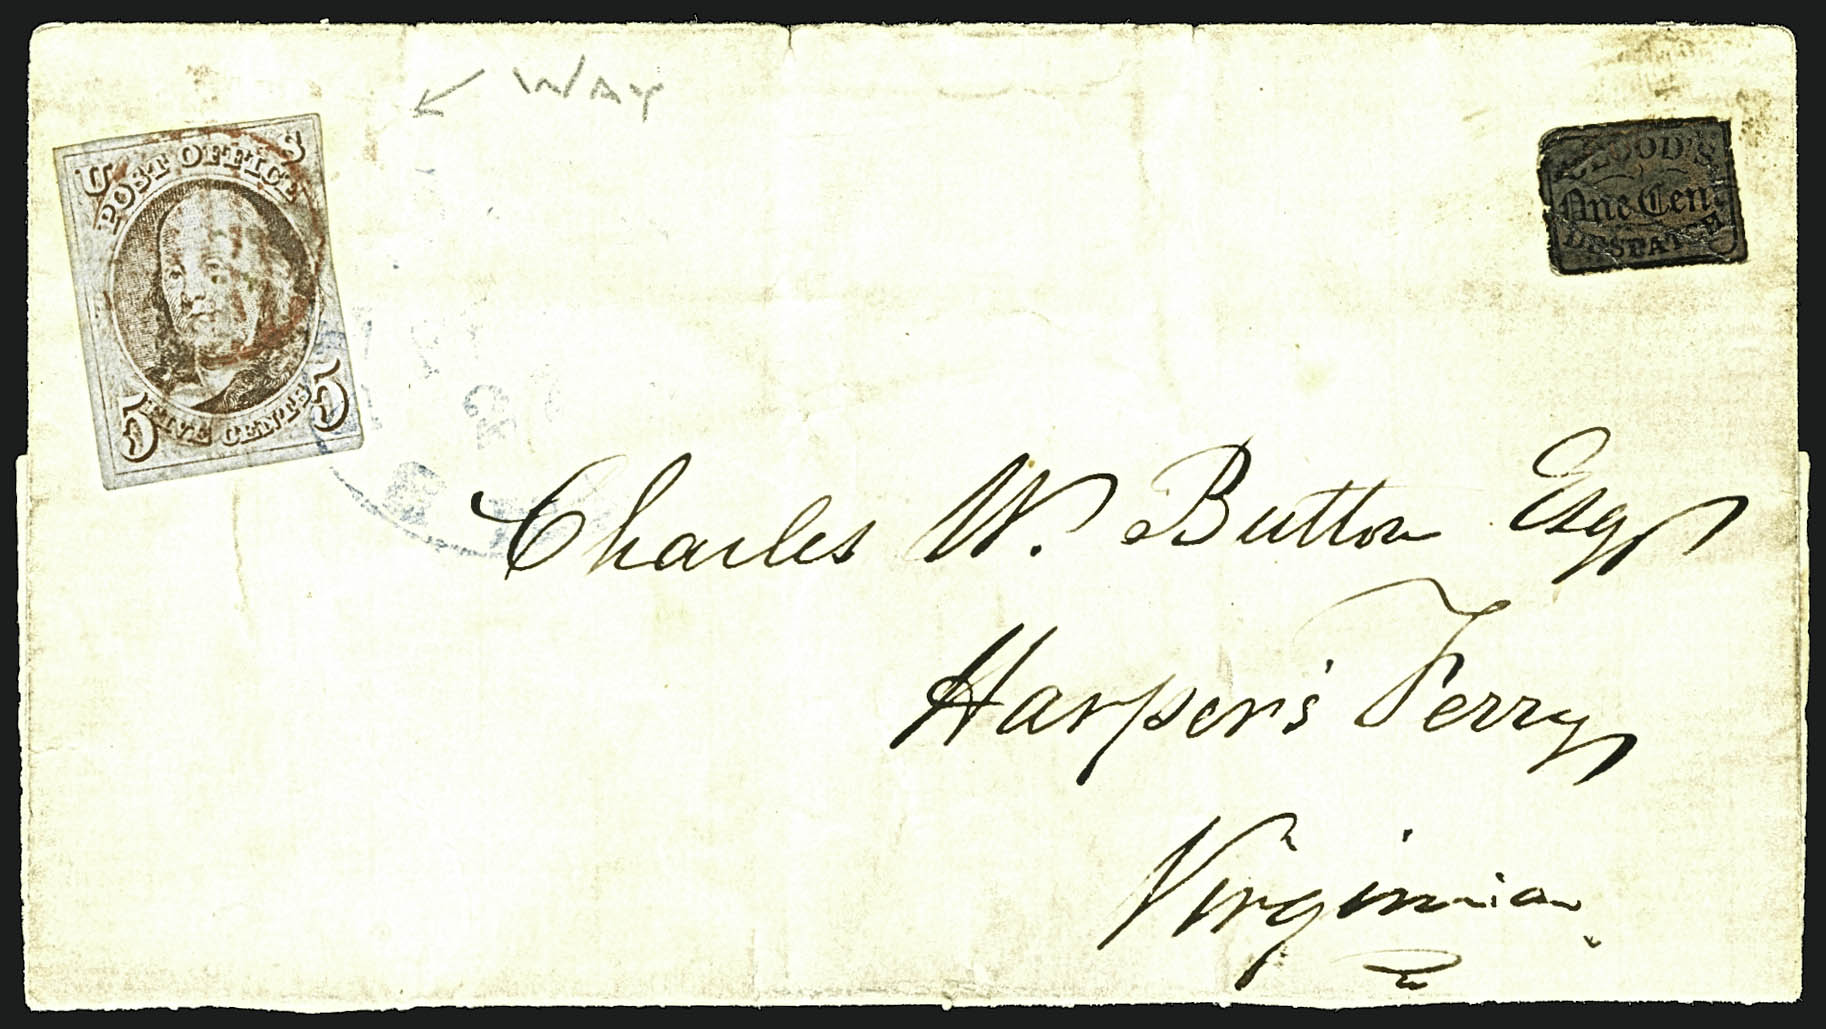 WAY
U S
POST OFFICE
5 FIVE CENTS 5
BLOOD'S
One Cent
DESPATCH
Charles W. Button Esq
Harper's Ferry
Virginia